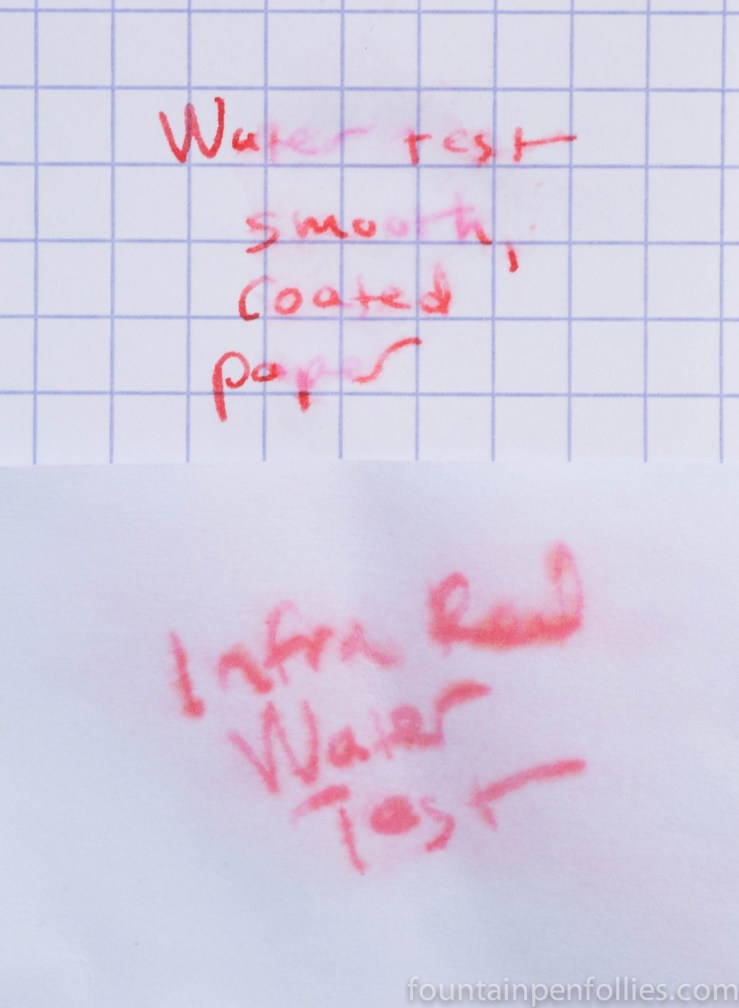 Water test
smooth,
coated
paper
Infra Red
Water
Test
fountainpenfollies.com